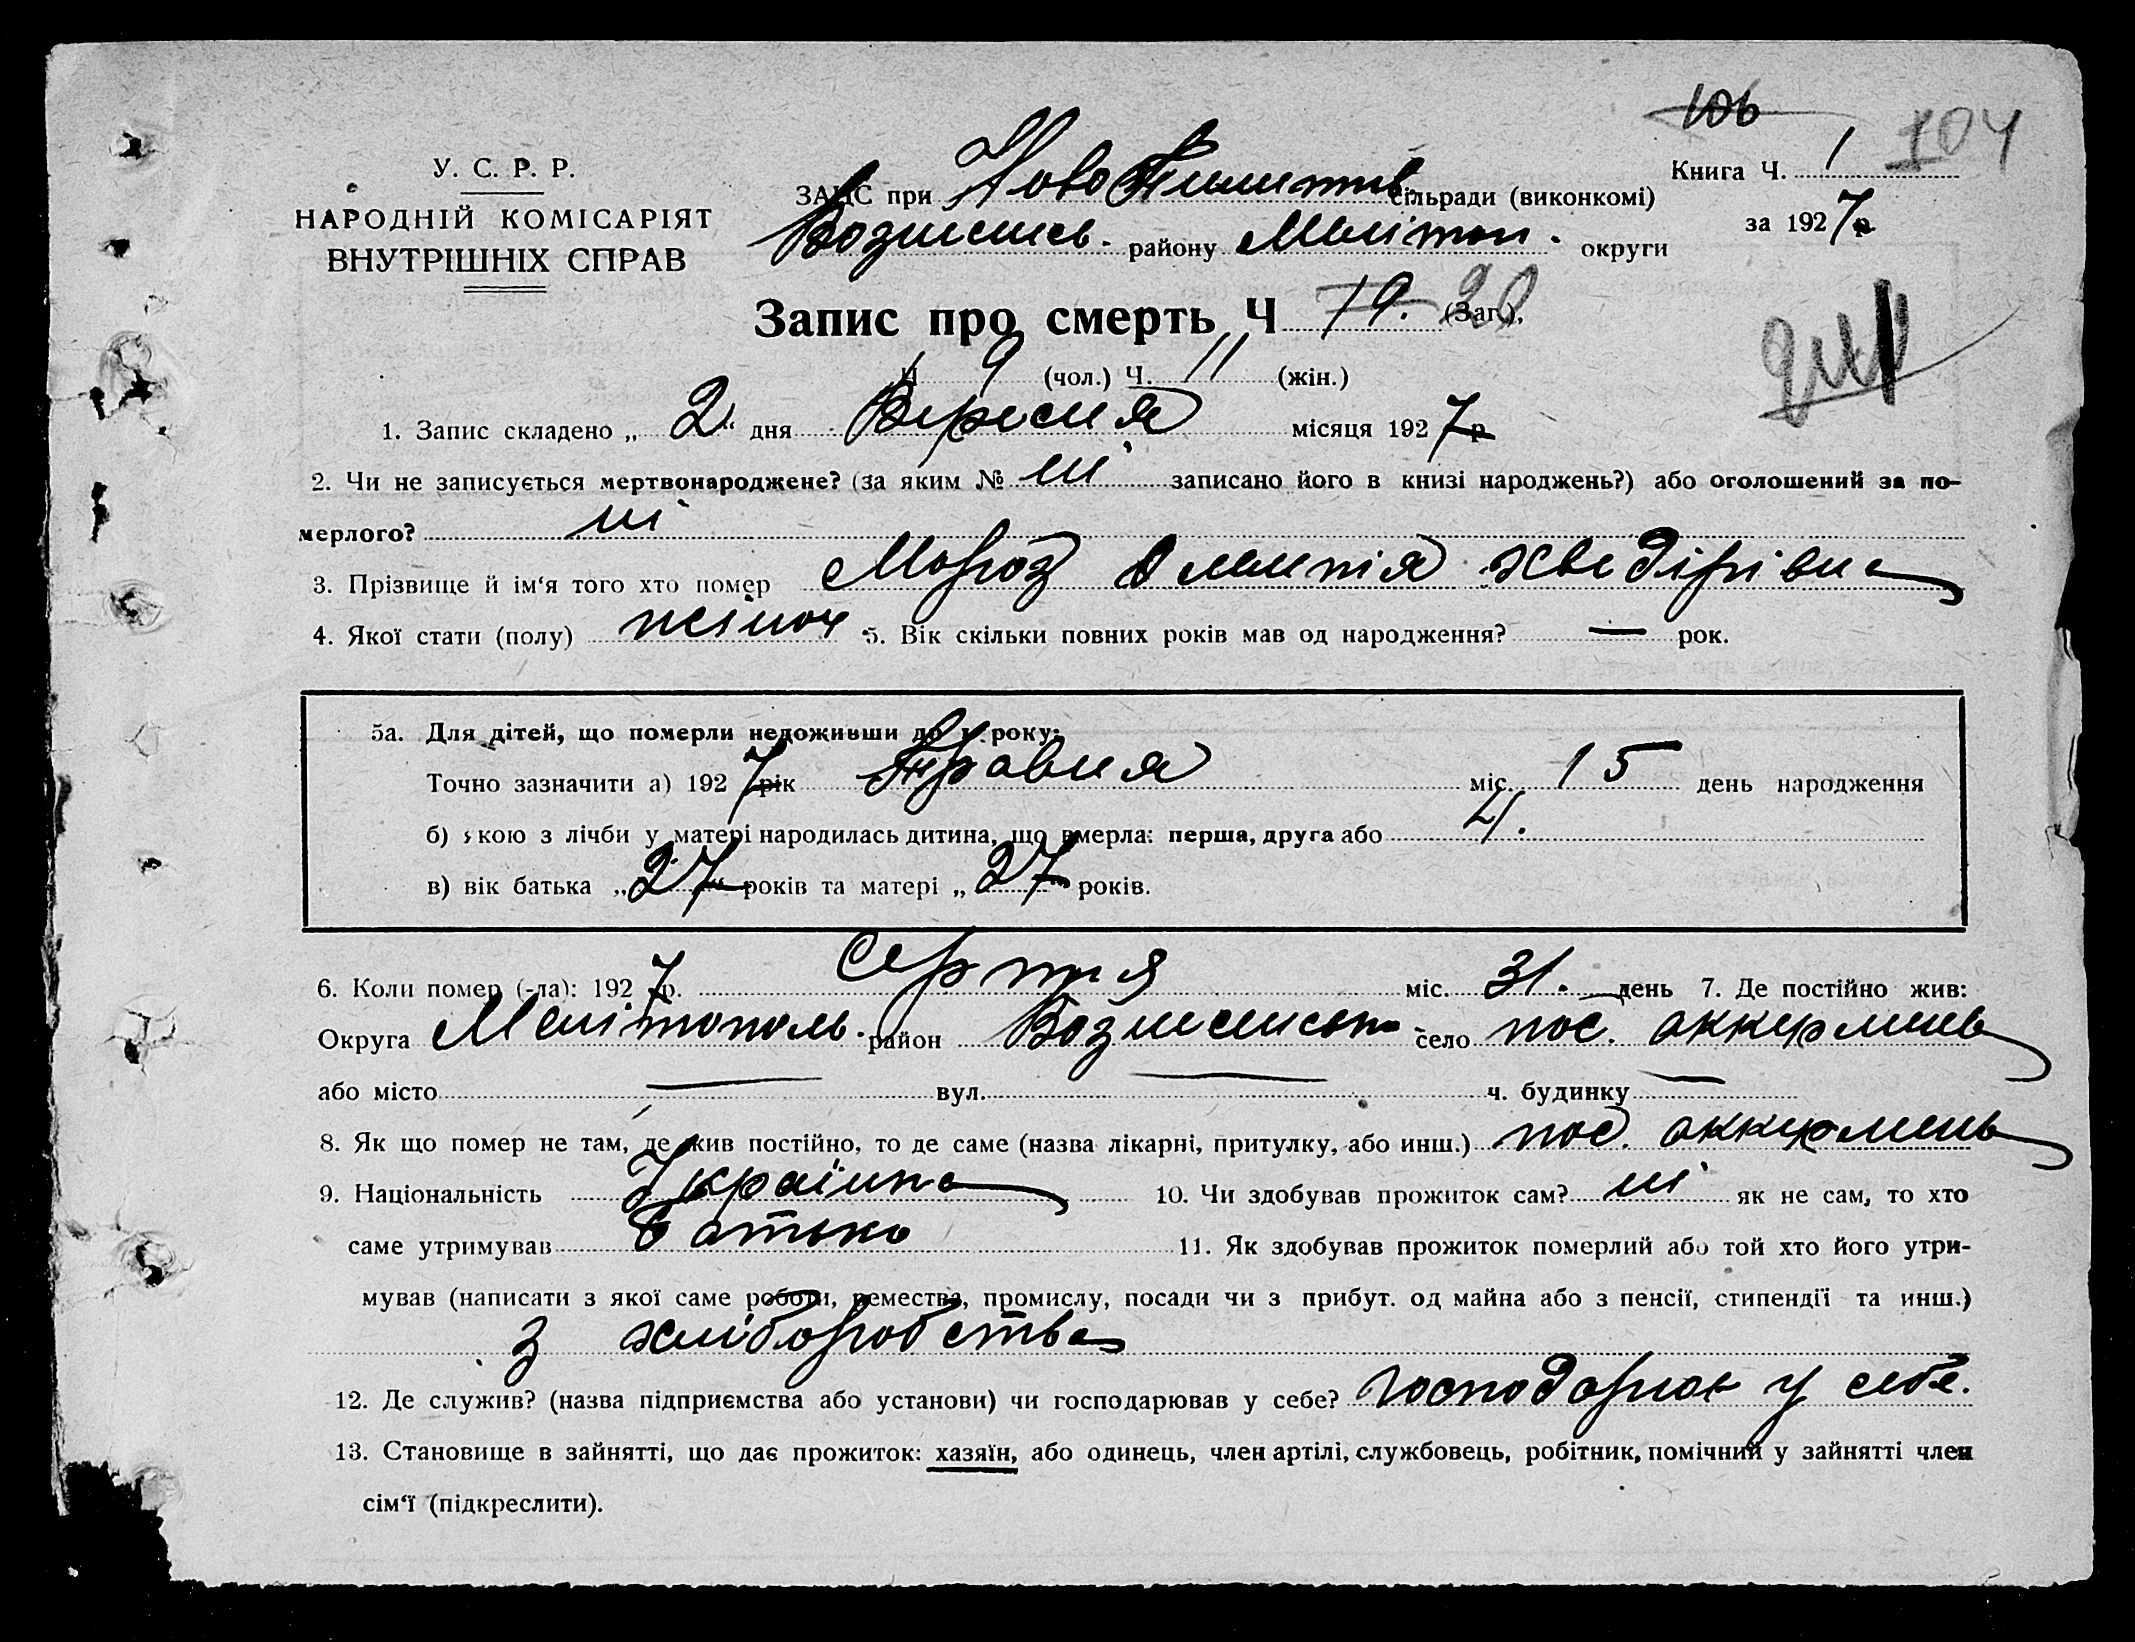 106 104
У. С. Р. Р.
НАРОДНІЙ КОМІСАРІЯТ
ВНУТРІШНІХ СПРАВ
ЗАЦС при Ново Пилипів. сільради (виконкомі)
Вознесенсь. району Меліт. округи
Книга Ч. 1
за 1927 р.
Запис про смерть Ч 19. 20 (Заг.),
Ч 9 (чол.) Ч. 11 (жін.)
1. Запис складено „2“ дня Вересня місяця 1927 р
2. Чи не записується мертвонароджене? (за яким № ні записано його в книзі народжень?) або оголошений за по-
мерлого? ні
3. Прізвище й ім‘я того хто помер Мороз Олимпія Хведірівна
4. Якої стати (полу) жіноч 5. Вік скільки повних років мав од народження? — рок.
5а. Для дітей, що померли недоживши до 1 року:
Точно зазначити а) 1927 рік Травня міс. 15 день народження
б) якою з лічби у матері народилась дитина, що вмерла: перша, друга або 4.
в) вік батька „27“ років та матері „27“ років.
6. Коли помер (-ла): 1927 р. Серпня міс. 31. день 7. Де постійно жив:
Округа Мелітополь. район Вознесенськ село пос. Аккермень
або місто — вул. — ч. будинку —
8. Як що помер не там, де жив постійно, то де саме (назва лікарні, притулку, або инш.) пос. Аккермень
9. Національність Українка 10. Чи здобував прожиток сам? ні як не сам, то хто
саме утримував Батько 11. Як здобував прожиток померлий або той хто його утри-
мував (написати з якої саме роботи, ремества, промислу, посади чи з прибут. од майна або з пенсії, стипендії та инш.)
з хліборобства
12. Де служив? (назва підприємства або установи) чи господарював у себе? господарює у себе.
13. Становище в зайнятті, що дає прожиток: хазяїн, або одинець, член артілі, службовець, робітник, помічний у зайнятті член
сім‘ї (підкреслити).